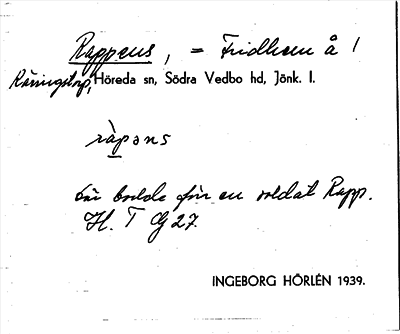 Rappens, = Fridhem å 1
Råningstorp, Höreda sn, Södra Vedbo hd, Jönk. l.
ràpəns
Där bodde förr en soldat Rapp.
H. T G 27.
INGEBORG HÖRLÉN 1939.